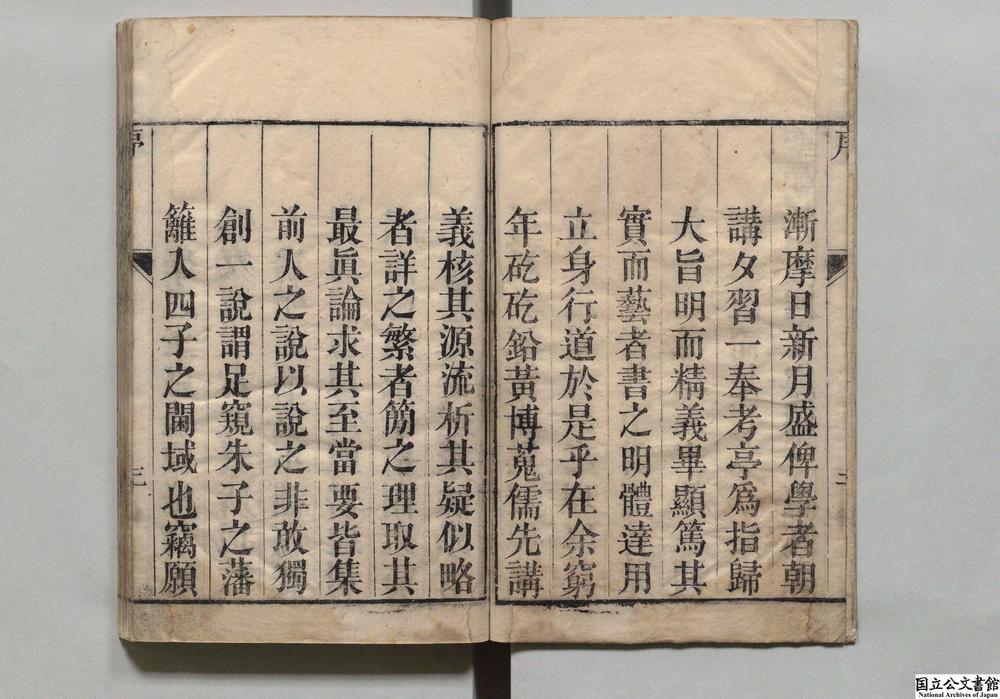 序
漸摩日新月盛俾學者朝
講夕習一奉考亭爲指歸
大旨明而精義畢顯篤其
實而藝者書之明體達用
立身行道於是乎在余窮
年矻矻鉛黃博蒐儒先講
二
義核其源流析其疑似略
者詳之繁者簡之理取其
最眞論求其至當要皆集
前人之說以說之非敢獨
創一說謂足窺朱子之藩
籬入四子之閫域也竊願
序
三
国立公文書館
National Archives of Japan